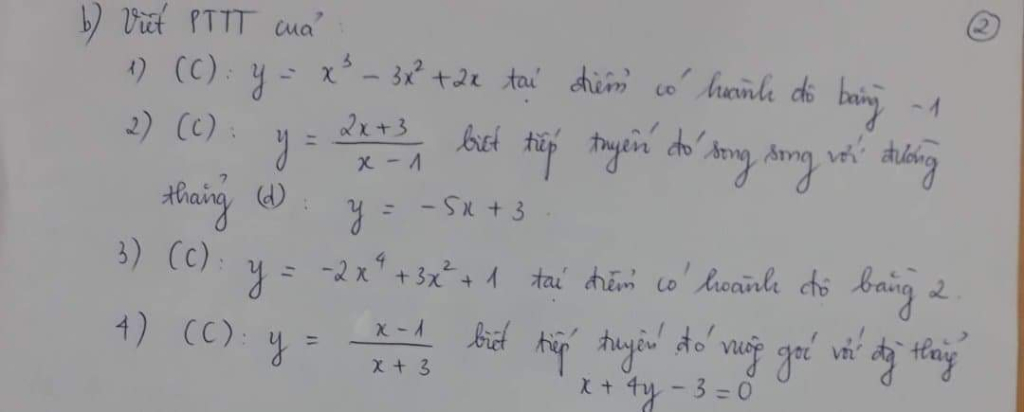 b) Viết PTTT của : ②
1) (C): y = x³ - 3x² + 2x tại điểm có hoành độ bằng -1
2) (C): y = \frac{2x+3}{x-1} biết tiếp tuyến đó song song với đường
thẳng (d): y = -5x + 3.
3) (C): y = -2x⁴ + 3x² + 1 tại điểm có hoành độ bằng 2.
4) (C): y = \frac{x-1}{x+3} biết tiếp tuyến đó vuông góc với đg thẳng
x + 4y - 3 = 0